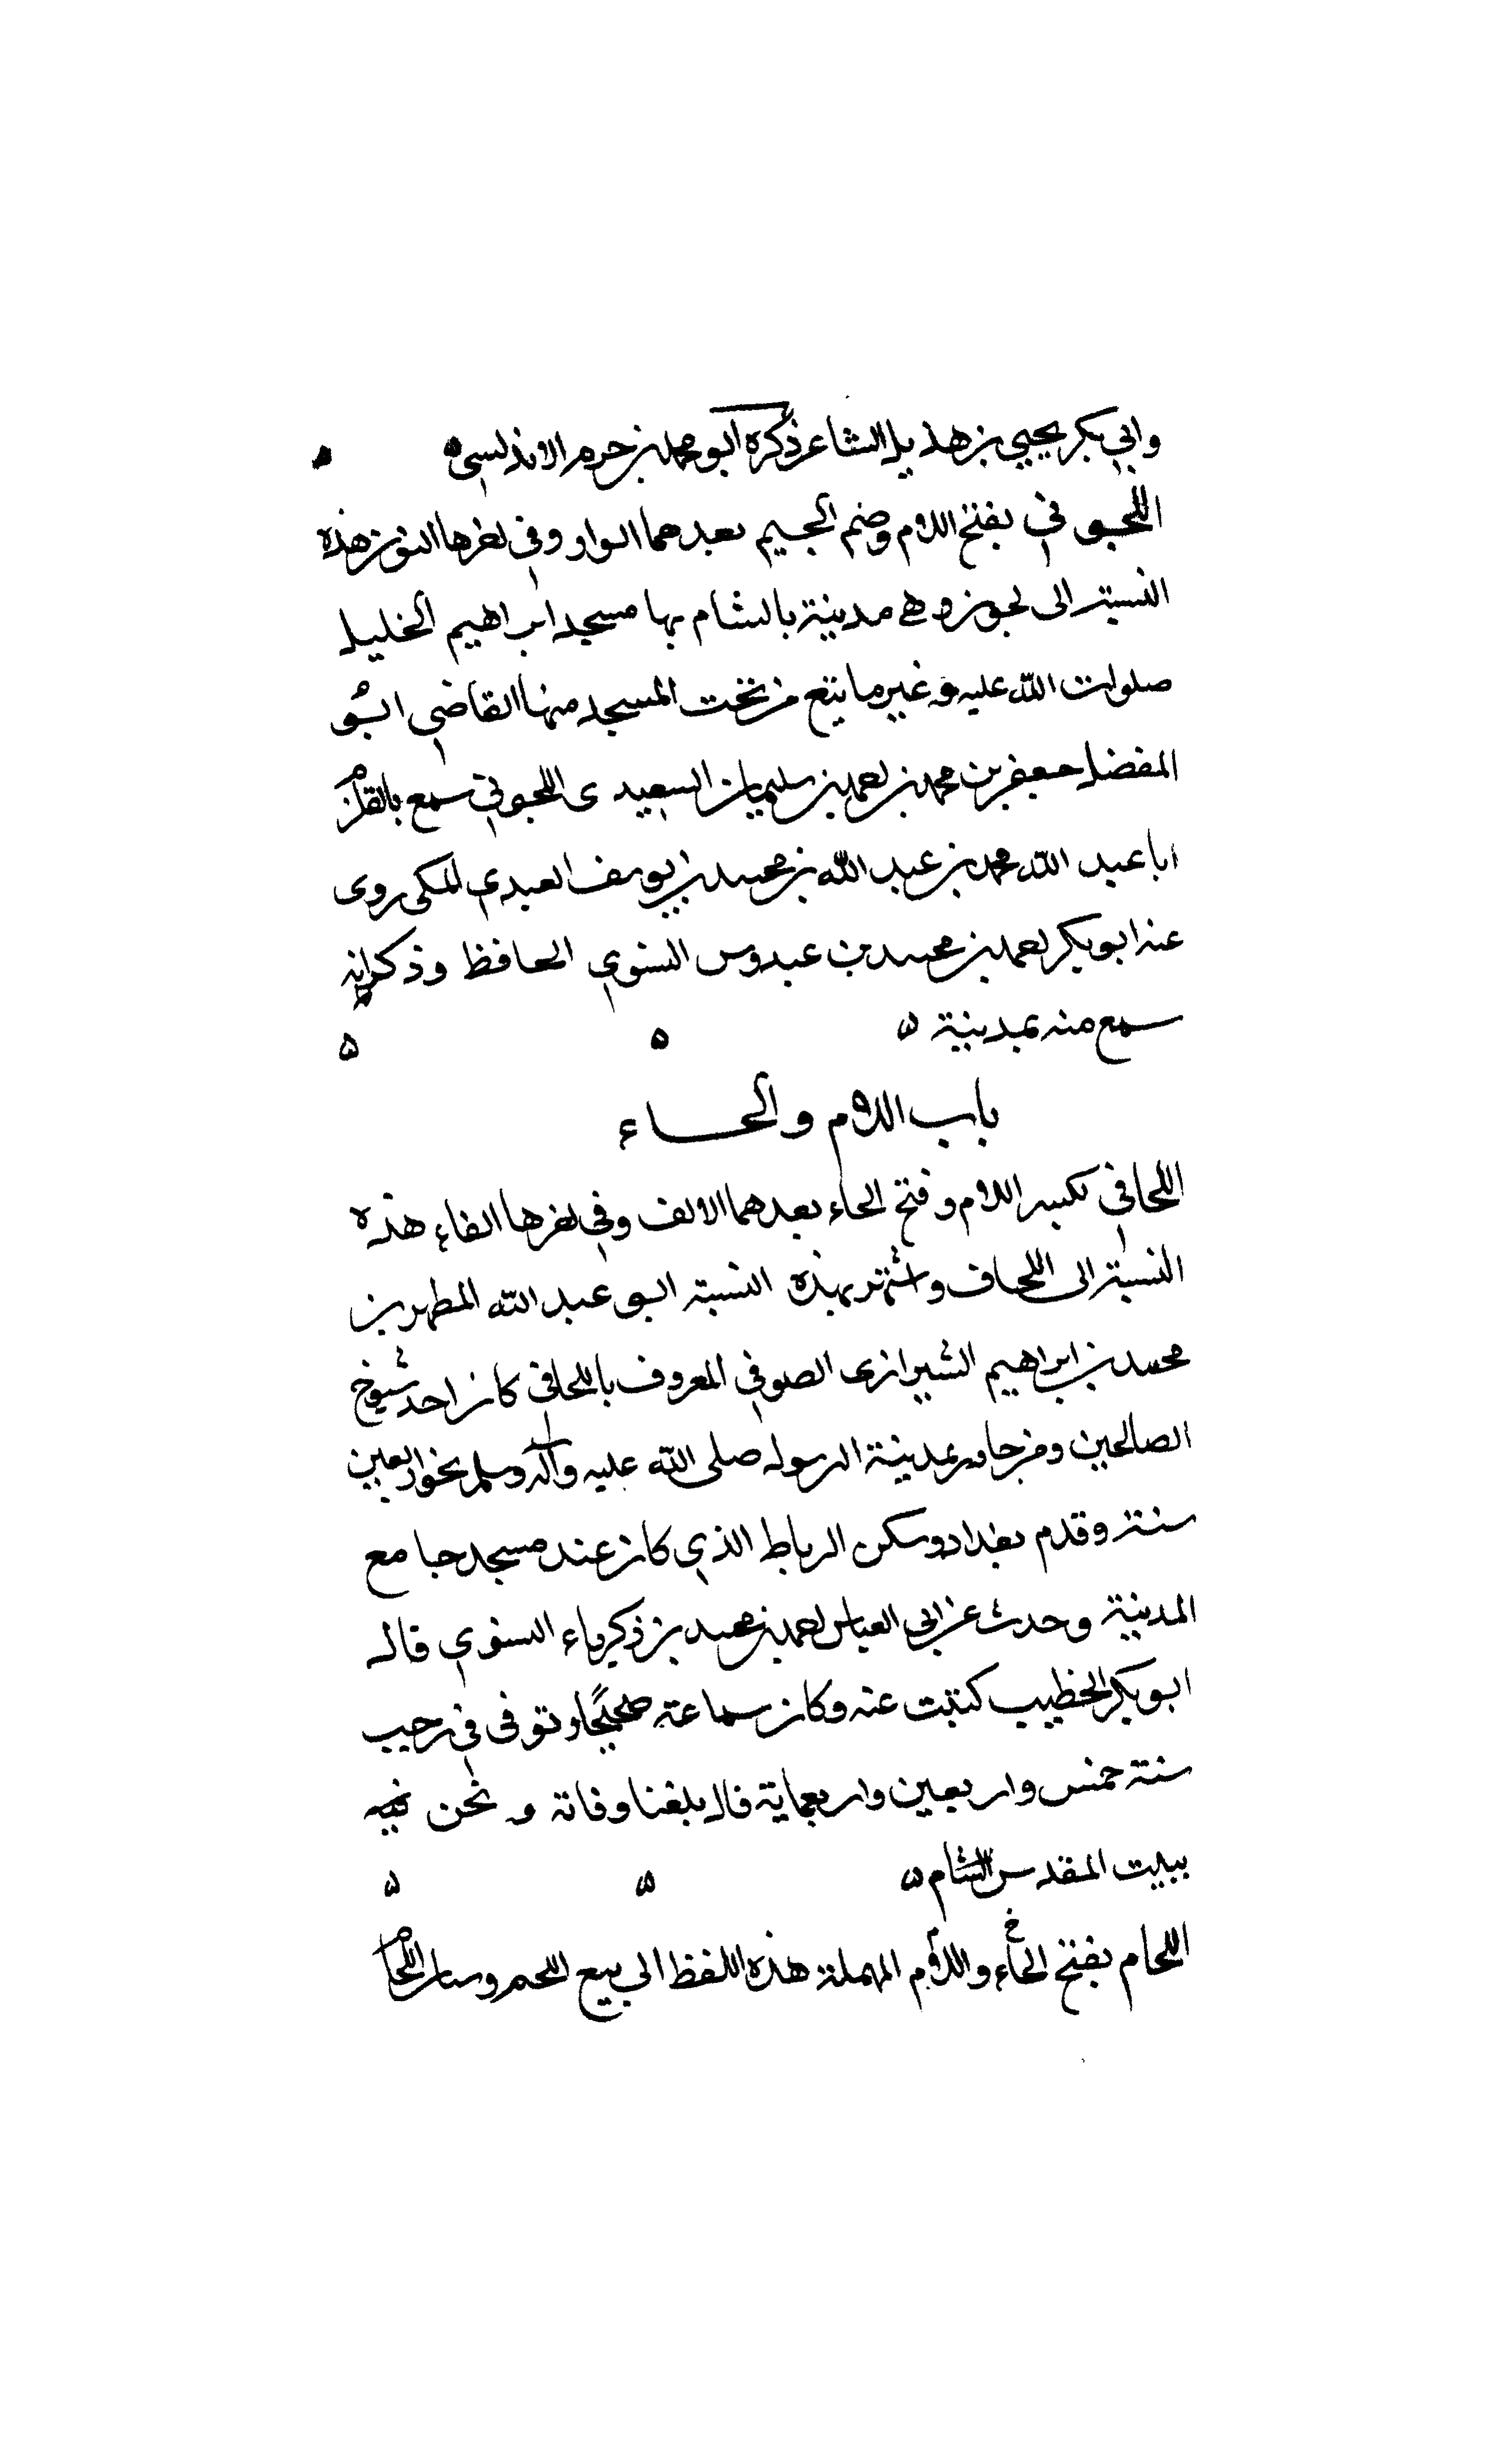 وابي بكر يحيي بن هذيل الشاعر ذكره ابو محمد بن حزم الاندلسي ه
اللجوني بفتح اللام وضم الجيم بعدهما الواو وفي اخرها النون هذه
النسبة الى لجون وهي مدينة بالشام بها مسجد ابراهيم الخليل
صلوات الله عليه وغير ما ينبع من تحت المسجد منها القاضي ابو
المفضل جعفر بن محمد بن احمد بن سليمان السعيدي اللجوني سمع بالقلزم
ابا عبد الله محمد بن عبد الله بن محمد بن يوسف العبدي المكي روى
عنه ابو بكر احمد بن محمد بن عبدوس النسوي الحافظ وذكر انه
سمع منه بمدينة ه ه ه
باب اللام والحاء
اللحافي بكسر اللام وفتح الحاء بعدهما الالف وفي اخرها الفاء هذه
النسبة الى اللحاف واشتهر بهذه النسبة ابو عبد الله المطهر بن
محمد بن ابراهيم الشيرازى الصوفي المعروف باللحافي كان احد شيوخ
الصالحين وممن جاور بمدينة الرسول صلى الله عليه وآله وسلم نحو اربعين
سنة وقدم بغداد وسكن الرباط الذي كان عند مسجد جامع
المدينة وحدث عن ابي العباس احمد بن محمد بن زكرياء النسوي قال
ابو بكر الخطيب كتبت عنه وكان سماعه صحيحًا وتوفى في رجب
سنة خمس واربعين واربعماية قال بلغنا وفاته ونحن
ببيت المقدس الشام ه ه ه
اللحام بفتح الحاء واللام المهملة هذه اللفظ الى بيع اللحم وسالم اللحام